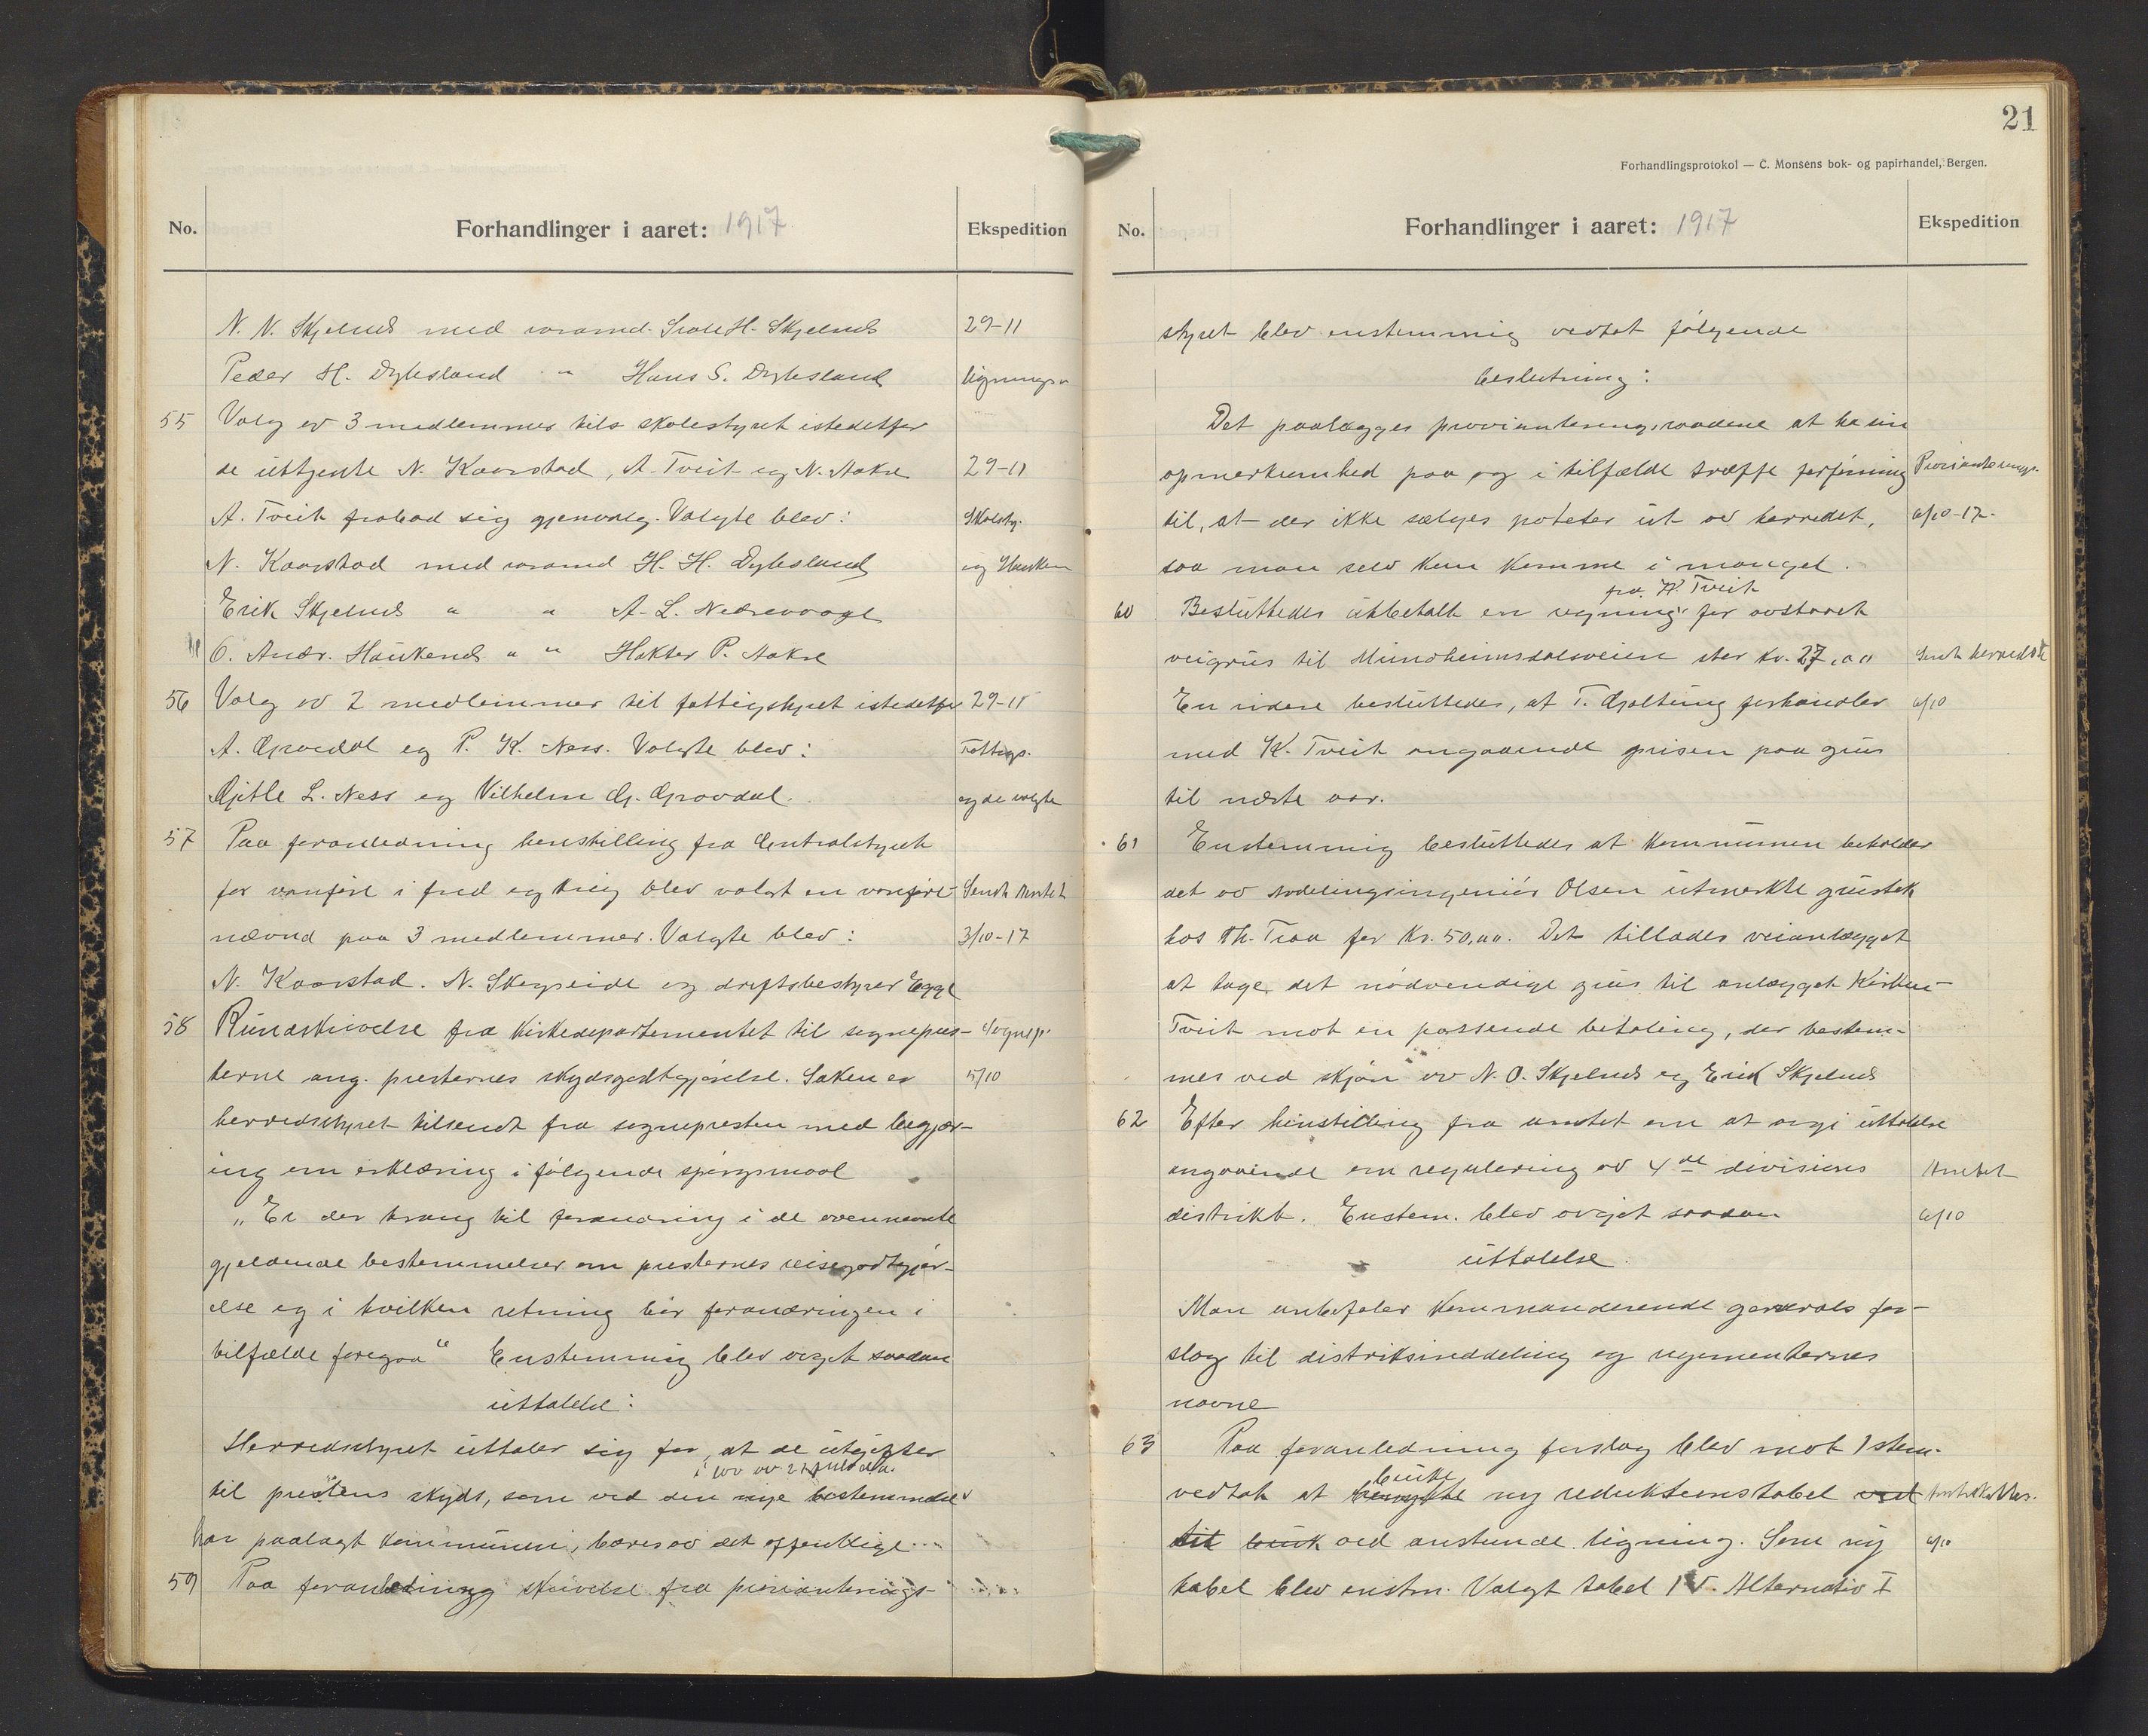 No.
Forhandlinger i aaret: 1917
Ekspedition
N. N. Skjelnes med varamd. H. Skjelnes
29-11
Peder H. Dybsland " Hans S. Dybsland
ligningsv
55 Valg av 3 medlemmer til skolestyret istedetfor
de uttjente N. Kaarstad, A. Tveit og N. Aakre
29-11
A. Tveit frabad sig gjenvalg. Valgte blev:
Skolesty.
N. Kaarstad med varamd H. H. Dybsland
Erik Skjelnes " " A. L. Nedrevaage
O. Andr. Haukenes " " Halstor P. Aakre
56 Valg av 2 medlemmer til fattigstyret istedetfor
29-11
A. Grovdal og P. K. Ness. Valgte blev:
Fattigs.
Gjitle L. Ness og Vilhelm G. Grovdal.
og de valgte
57 Paa foranledning henstilling fra Centralstyret
for vanføre i fred og krig blev valgt en vanføre-
Sendt Amtet
nævnd paa 3 medlemmer. Valgte blev:
3/10-17
N. Kaarstad. N. Skogseide og driftsbestyrer Egge
58 Rundskrivelse fra Kirkedepartementet til sogneprés-
Sognepr.
terne ang. presternes skydsgodtgjørelse. Saken er
5/10
herredsstyret tilsendt fra sognepresten med begjær-
ing om erklæring i følgende spørgsmaal
"Er der trang til forandring i de ovennevnte
gjeldende bestemmelser om presternes reisegodtgjør-
else og i hvilken retning bør forandringen i
tilfælde foregaa" Enstemmig blev avgit saadan
uttalelse:
Herredsstyret uttaler sig for, at de utgifter
i lov av 21
til prestens skyds, som ved den nye bestemmelse
har paalagt kommunen, bæres av det offentlige
59 Paa foranledning skrivelse fra provianterings-
21
Forhandlingsprotokol — C. Monsens bok- og papirhandel, Bergen.
No.
Forhandlinger i aaret: 1917
Ekspedition
styret blev enstemmig vedtat følgende
beslutning:
Det paalægges provianteringsraadene at ha sin
opmerksomhed paa og i tilfælde træffe forføining
Provianterings.
til, at der ikke sælges poteter ut av herredet,
6/10-17.
saa man selv kan komme i mangel.
fra K. Tveit
60 Besluttedes utbetalt en regning for avstaaet
veigrus til Mundheimsdalsveien stor kr. 27,00
En videre besluttedes, at T. Gjeltung forhandler
6/10
med K. Tveit angaaende prisen paa grus
til næste aar.
61 Enstemmig besluttedes at kommunen beholder
det av avdelingsingeniør Olsen utmerkte grustak
hos Th. Traa for Kr. 50,00. Det tillades veianlægget
at tage det nødvendige grus til anlægget Kirken-
Tveit mot en passende betaling, der bestem-
mes ved skjøn av N. O. Skjelnes og Erik Skjelnes
62 Efter henstilling fra amtet om at avgi uttalelse
angaaende om regulering av 4de divisions
Amtet
distrikt. Enstem. blev avgjet saadan
6/10
uttalelse.
Man anbefaler Kommanderende generals for-
slag til distriksinddeling og regementernes
navne
63 Paa foranledning forslag blev mot 1 stem.
bruke
vedtat at benytte ny reduktionstabel ved
til bruk ved anstundende ligning. Som ny
6/10
tabel blev enstm. Valgt tabel IV. Alternativ I